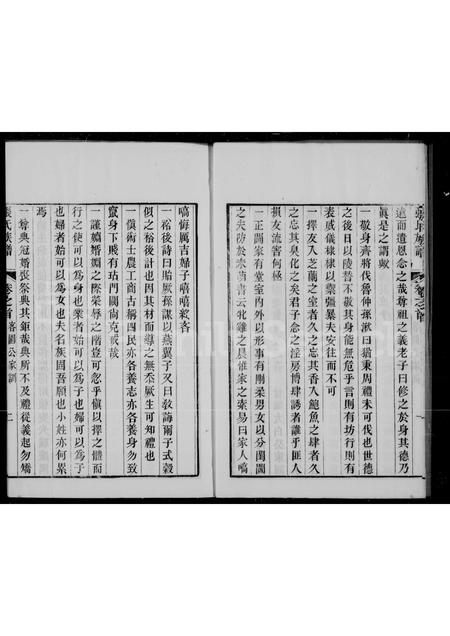 遠而遺恩念之哉尊祖之義老子曰修之於身其德乃
眞是之謂歟
一敬身齊將伐魯仲孫湫曰猶秉周禮未可伐也世德
之後日以陵替不敬其身能無危乎言則有坊行則有
表威儀棣棣以禦彊暴夫安往而不可
一擇友入芝蘭之室者久之忘其香入鮑魚之肆者久
之忘其臭化之矣君子念之淫房博肆誘者誰乎匪人
損友流害何極
一正閫家有堂室內外以形事有剛柔男女以分閨閫
之夫防於未萌書云牝雞之晨惟家之索易曰家人嗃
嗃悔厲吉婦子嘻嘻終吝
一裕後詩曰貽厥孫謀以燕翼子又曰敎誨爾子式穀
似之裕後計也因其材而導之無忝厥生可知禮也
一愼術士農工商古稱四民亦各養志亦各養身勿致
竄身下賤有玷門閥尙克戒哉
一謹婣婚姻之際榮辱之階豈可忽乎愼以擇之體而
行之使可以爲身也業者始可以爲子也婦可以爲子
也婦者始可以爲女也夫名族固吾願也小姓亦何累
焉
一尊典冠婚喪祭典其鉅哉典所不及禮從義起勿矯
張氏族譜
卷之首
家訓
二